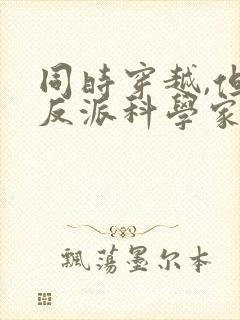 同時穿越,但
反派科學家
飄蕩墨尔本